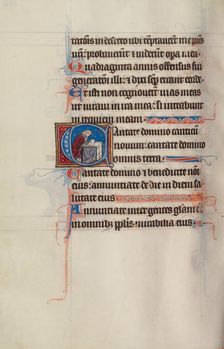 tationis in deserto ubi temptauerunt me patres
uri: probauerunt et uiderunt opera mea.
Quadraginta annis offensus fui
generationi illi: et dixi semper hii errant corde
Et isti non cognouerunt uias meas
ut iuraui in ira mea: si introibunt
in requiem meam.
Cantate domino canticum
nouum: cantate domino
omnis terra.
Cantate domino et benedicite nomini
eius: annunciate de die in diem sa
lutare eius
Annunciate inter gentes gloriam eius
in omnibus populis mirabilia eius